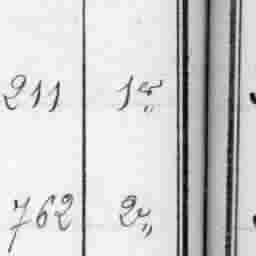 211 1
762 2